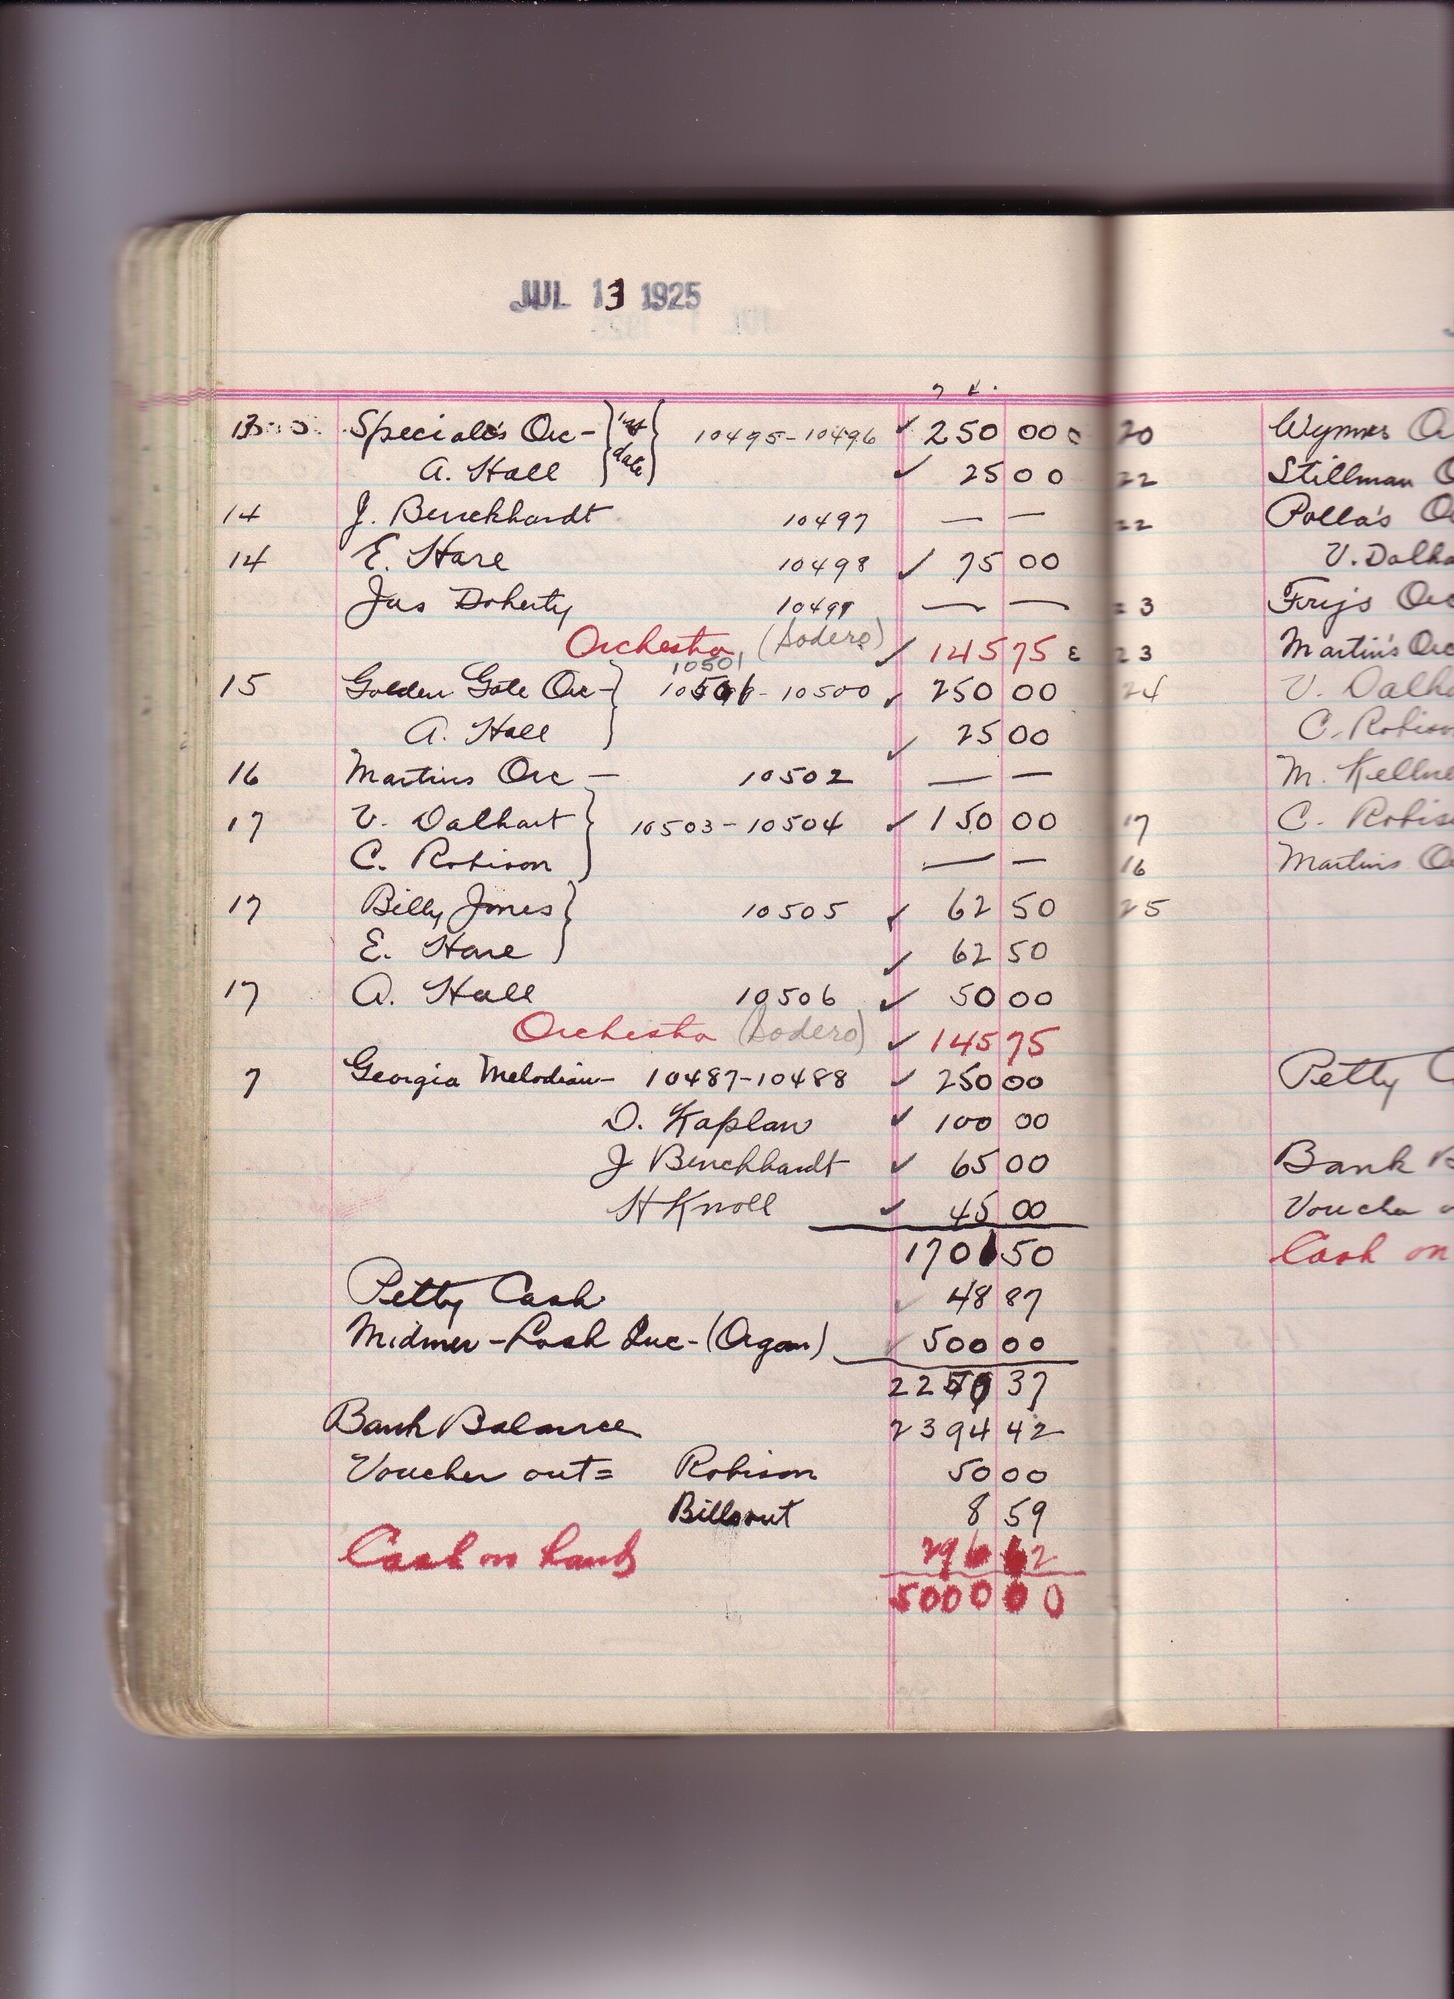 JUL 13 1925
13 Speciale's Orc- 1st date 10495-10496 ✓ 250 00
A. Hall ✓ 25 00
14 J. Burckhardt 10497 — —
14 E. Hare 10498 ✓ 75 00
Jas Doherty 10499 — —
Orchestra (Sodero) ✓ 145 75
10501
15 Golden Gate Orc- - 10500 ✓ 250 00
A. Hall ✓ 25 00
16 Martins Orc — 10502 — —
17 V. Dalhart 10503-10504 ✓ 150 00
C. Robison — —
17 Billy Jones 10505 ✓ 62 50
E. Hare ✓ 62 50
17 A. Hall 10506 ✓ 50 00
Orchestra (Sodero) ✓ 145 75
7 Georgia Melodian- 10487-10488 ✓ 250 00
D. Kaplan ✓ 100 00
J Burckhardt ✓ 65 00
H Knoll ✓ 45 00
1701 50
Petty Cash ✓ 48 87
Midmer-Losh Inc-(Organ) ✓ 500 00
2250 37
Bank Balance 2394 42
Voucher out= Robison 50 00
Bills out 8 59
Cash on hand 296 62
5000 00
20 Wynnes Or
22 Stillman O
22 Polla's O
V. Dalha
23 Frey's Orc
23 Martin's Orc
24 V. Dalha
C. Robison
M. Kellne
17 C. Robis
16 Martins O
25
Petty C
Bank B
Voucher o
Cash on